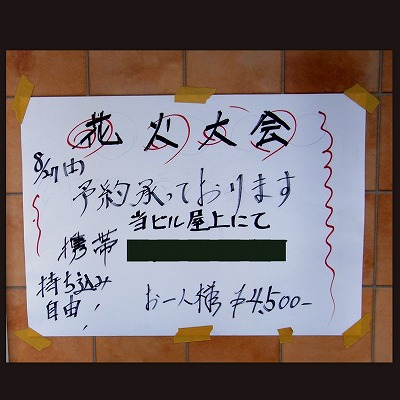 花火大会
8/27(土)
予約承っております
当ビル屋上にて
携帯
持ち込み
自由!
お一人様 ¥4,500-